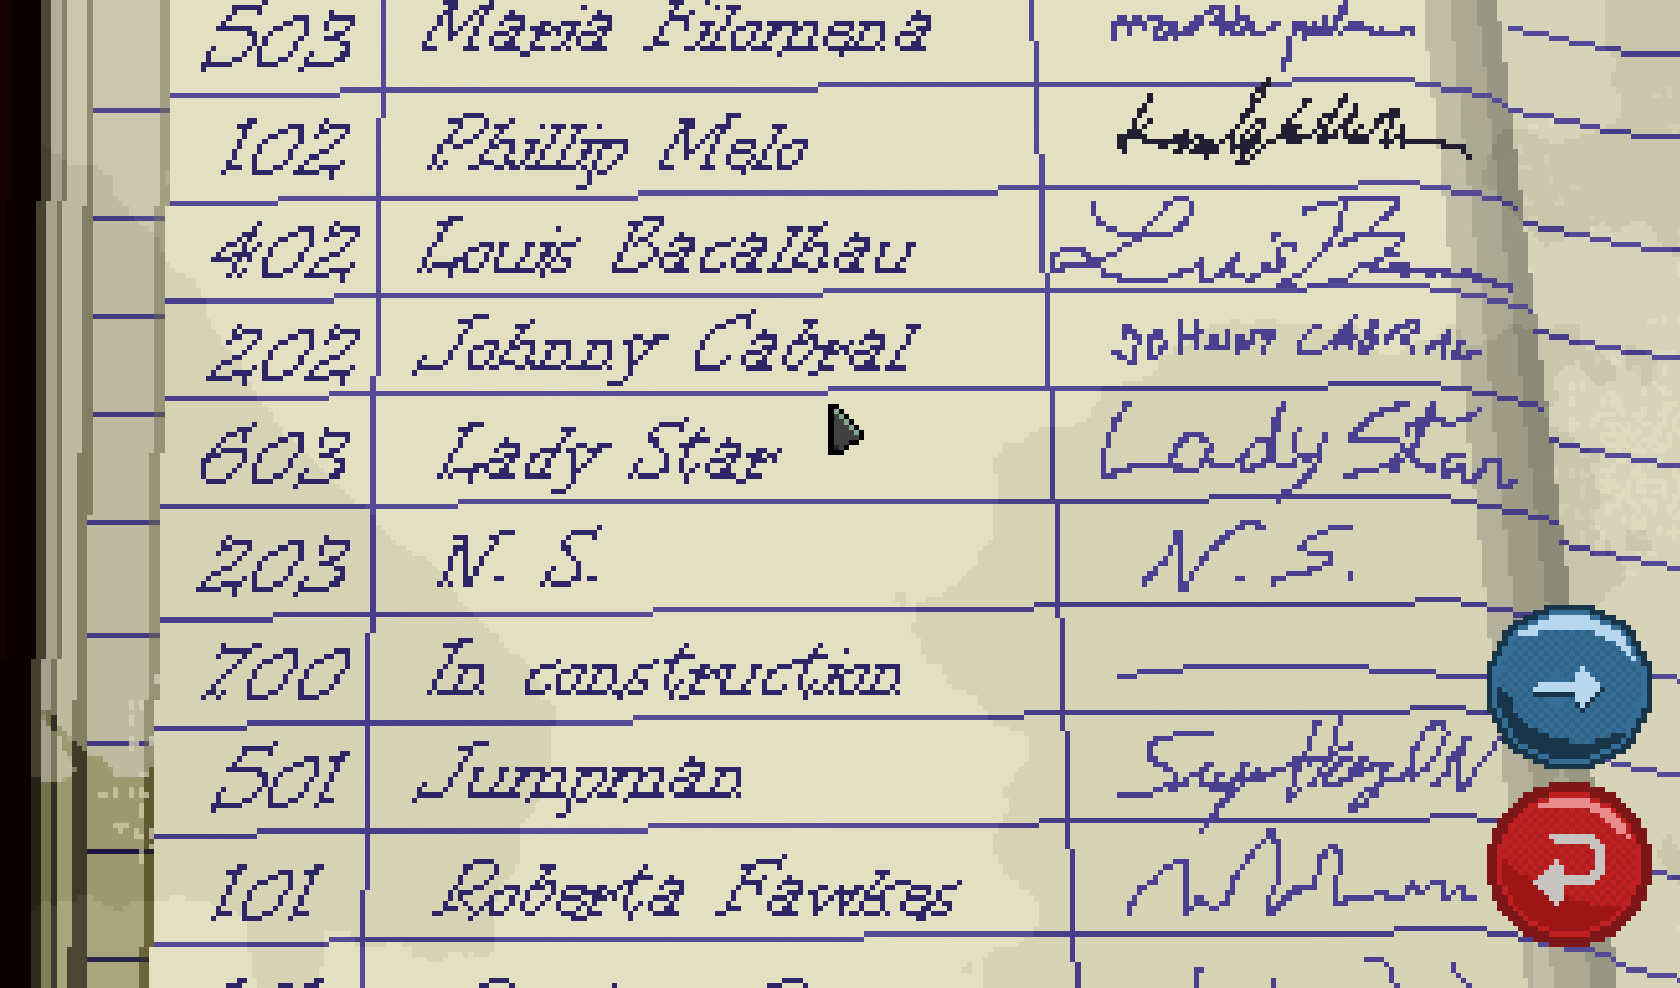 503 Maria Filomena
102 Phillip Melo
402 Louis Bacalhau
202 Johnny Cabral
603 Lady Star Lady Star
203 N. S. N. S.
700 In construction
501 Jumpman
101 Roberta Fawkes